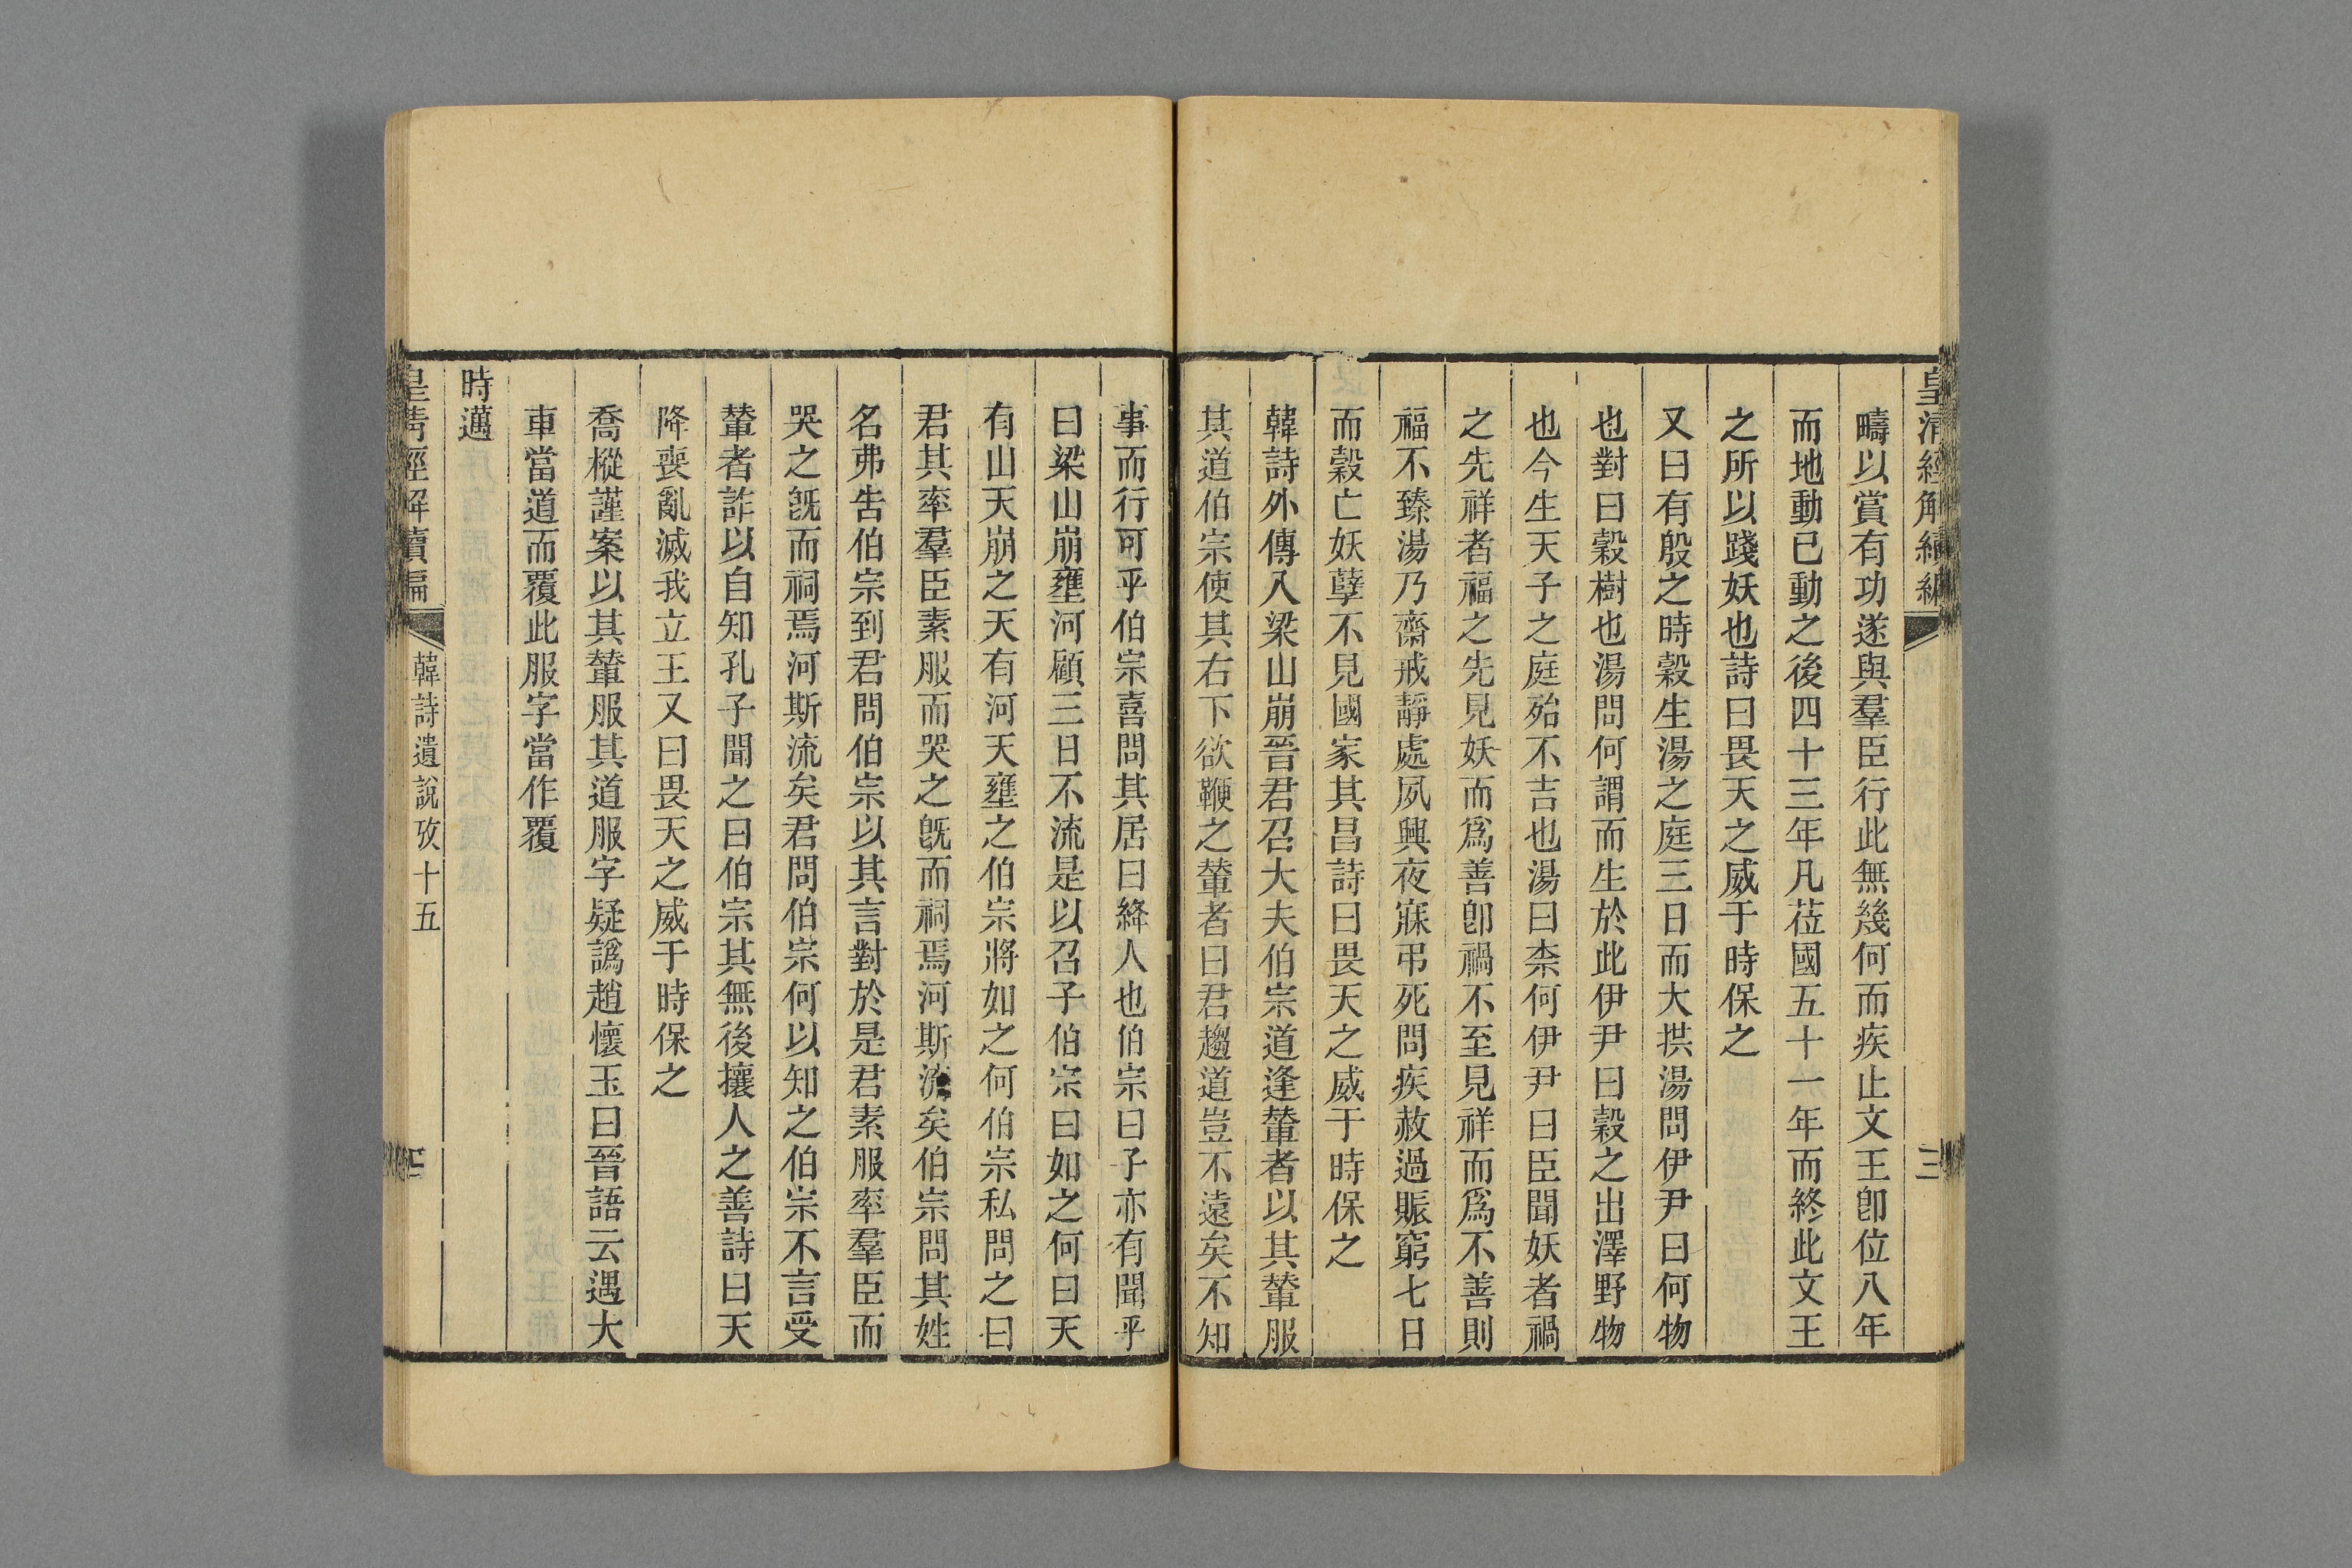 皇清經解續編
三
疇以賞有功遂與羣臣行此無幾何而疾止文王卽位八年
而地動已動之後四十三年凡莅國五十一年而終此文王
之所以踐妖也詩曰畏天之威于時保之
又曰有殷之時穀生湯之庭三日而大拱湯問伊尹曰何物
也對曰穀樹也湯問何謂而生於此伊尹曰穀之出澤野物
也今生天子之庭殆不吉也湯曰柰何伊尹曰臣聞妖者禍
之先祥者福之先見妖而爲善卽禍不至見祥而爲不善則
福不臻湯乃齋戒靜處夙興夜寐弔死問疾赦過賑窮七日
而穀亡妖孽不見國家其昌詩曰畏天之威于時保之
韓詩外傳入梁山崩晉君召大夫伯宗道逢輦者以其輦服
其道伯宗使其右下欲鞭之輦者曰君趨道豈不遠矣不知
事而行可乎伯宗喜問其居曰絳人也伯宗曰子亦有聞乎
曰梁山崩壅河顧三日不流是以召子伯宗曰如之何曰天
有山天崩之天有河天壅之伯宗將如之何伯宗私問之曰
君其率羣臣素服而哭之旣而祠焉河斯流矣伯宗問其姓
名弗告伯宗到君問伯宗以其言對於是君素服率羣臣而
哭之旣而祠焉河斯流矣君問伯宗何以知之伯宗不言受
輦者詐以自知孔子聞之曰伯宗其無後攘人之善詩曰天
降喪亂滅我立王又曰畏天之威于時保之
喬樅謹案以其輦服其道服字疑譌趙懷玉曰晉語云遇大
車當道而覆此服字當作覆
時邁
皇清經解續編
韓詩遺說攷十五